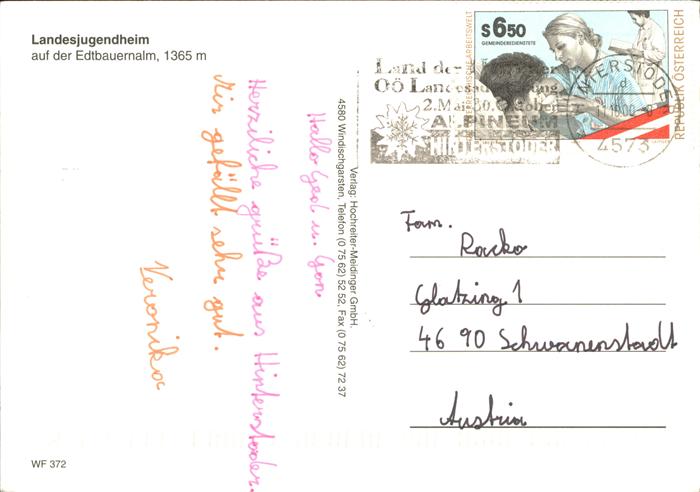 Landesjugendheim
auf der Edtbauernalm, 1365 m
S6.50
GEMEINDEBEDIENSTETE
ÖSTERREICHISCHE ARBEITSWELT
REPUBLIK ÖSTERREICH
Land der
OÖ Landesausstellung
2. Mai
ALPINEUM
HINTERSTODER
HINTERSTODER
4573
Hallo
Herzliche grüße aus Hinterstoder.
Mir gefällt sehr gut.
Veronika
Verlag: Hochreiter-Meidinger GmbH.
4580 Windischgarsten, Telefon (0 75 62) 52 52, Fax (0 75 62) 72 37
Fam.
Racko
Glatzing 1
46 90 Schwanenstadt
Austria
WF 372